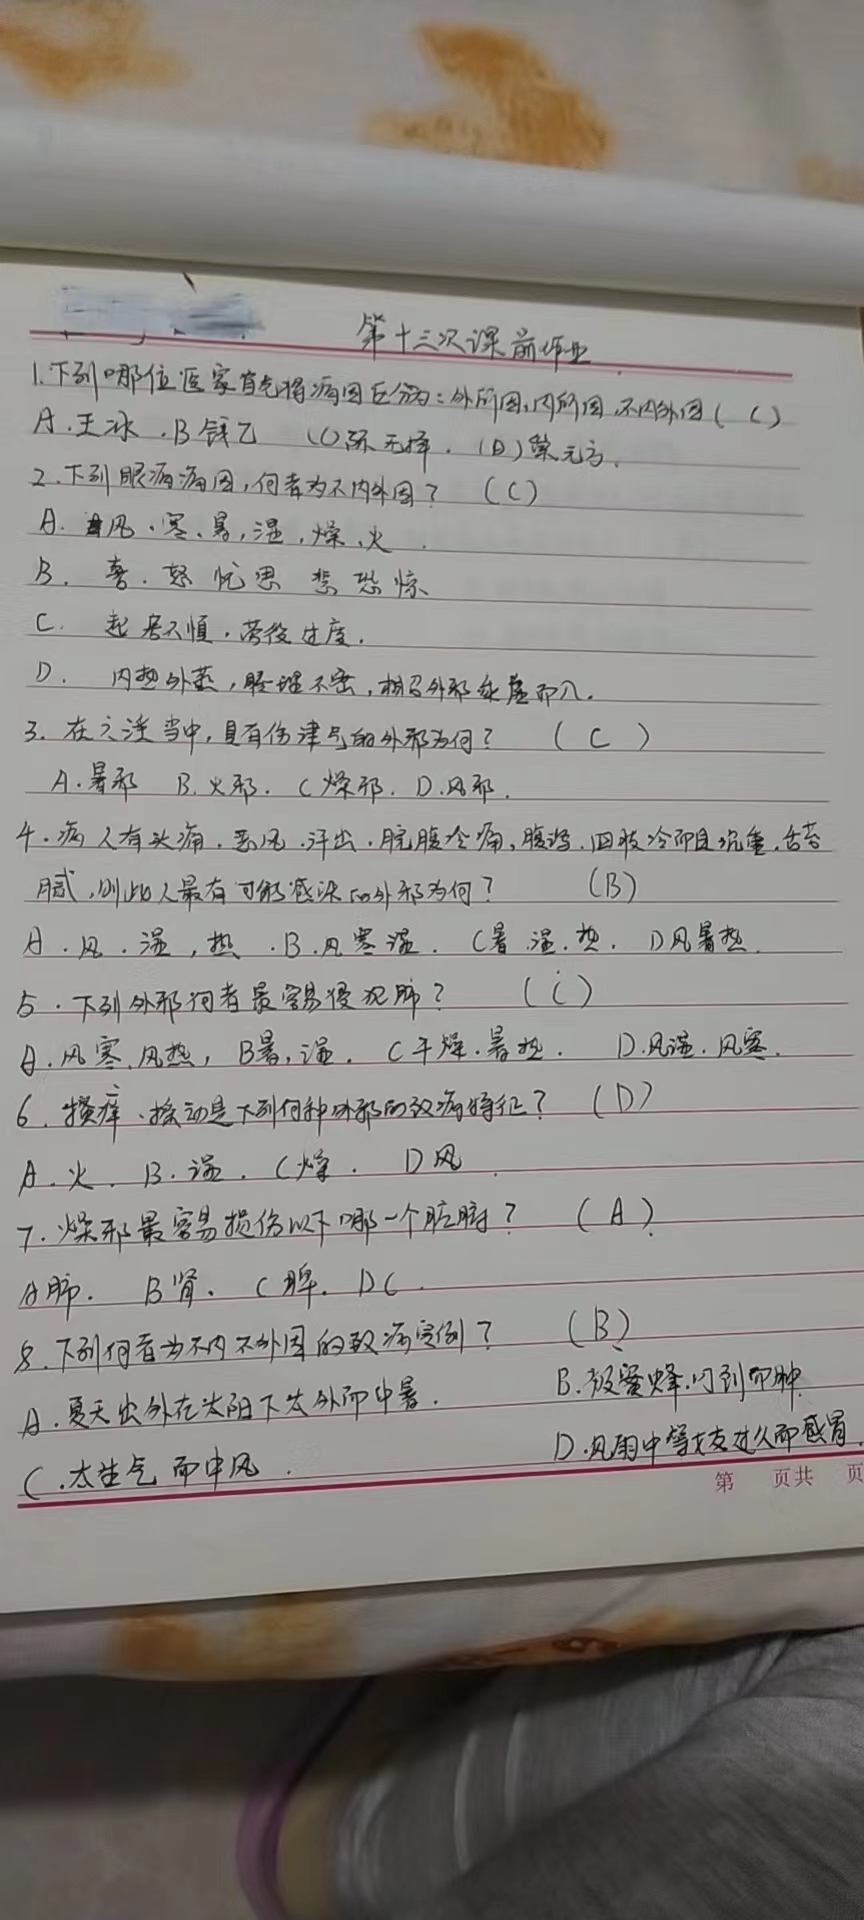 第十三次课前作业
1.下列哪位医家首先将病因区分为:外所因,内所因,不内外因( C )
A.王冰 .B 钱乙 (C)陈无择. (D)巢元方.
2.下列眼病病因,何者为不内外因? (C)
A. 风、寒、暑,湿,燥、火.
B. 喜.怒 忧 思 悲 恐 惊
C. 起居不慎,劳役过度.
D. 内热外蒸,腠理不密,相召外邪乘虚而入.
3.在六淫当中,具有伤津气的外邪为何? ( C )
A.暑邪 B.火邪. C 燥邪. D.风邪.
4.病人有头痛.恶风.汗出.脘腹冷痛,腹泻.四肢冷而且沉重,舌苔
腻,则此人最有可能感染的外邪为何? (B)
A.风.湿,热.B.风寒湿. C暑.湿.热. D风暑热.
5.下列外邪何者最容易侵犯肺? (C)
A.风寒.风热, B暑,湿. C干燥.暑热. D.风湿.风寒.
6.搔痒.摇动是下列何种外邪的致病特征? (D)
A.火. B.湿. C燥. D风
7.燥邪最容易损伤以下哪一个脏腑? (A)
A肺. B肾. C脾. D心.
8.下列何者为不内不外因的致病实例? (B)
A.夏天出外在太阳下太外而中暑. B.被蜜蜂叮到而肿
C.太生气而中风. D.风雨中等女友过久而感冒.
第 页共 页